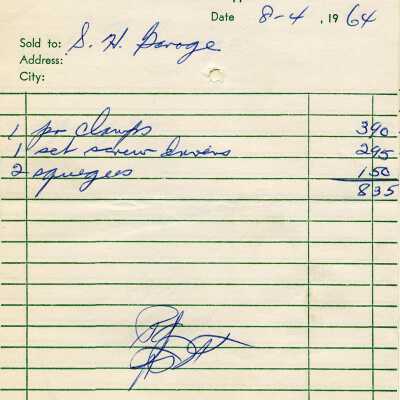 Date 8-4, 1964
Sold to: S. H. Barage
Address:
City:
1 pr Clamps 390
1 set screw drivers 295
2 squegees 150
835